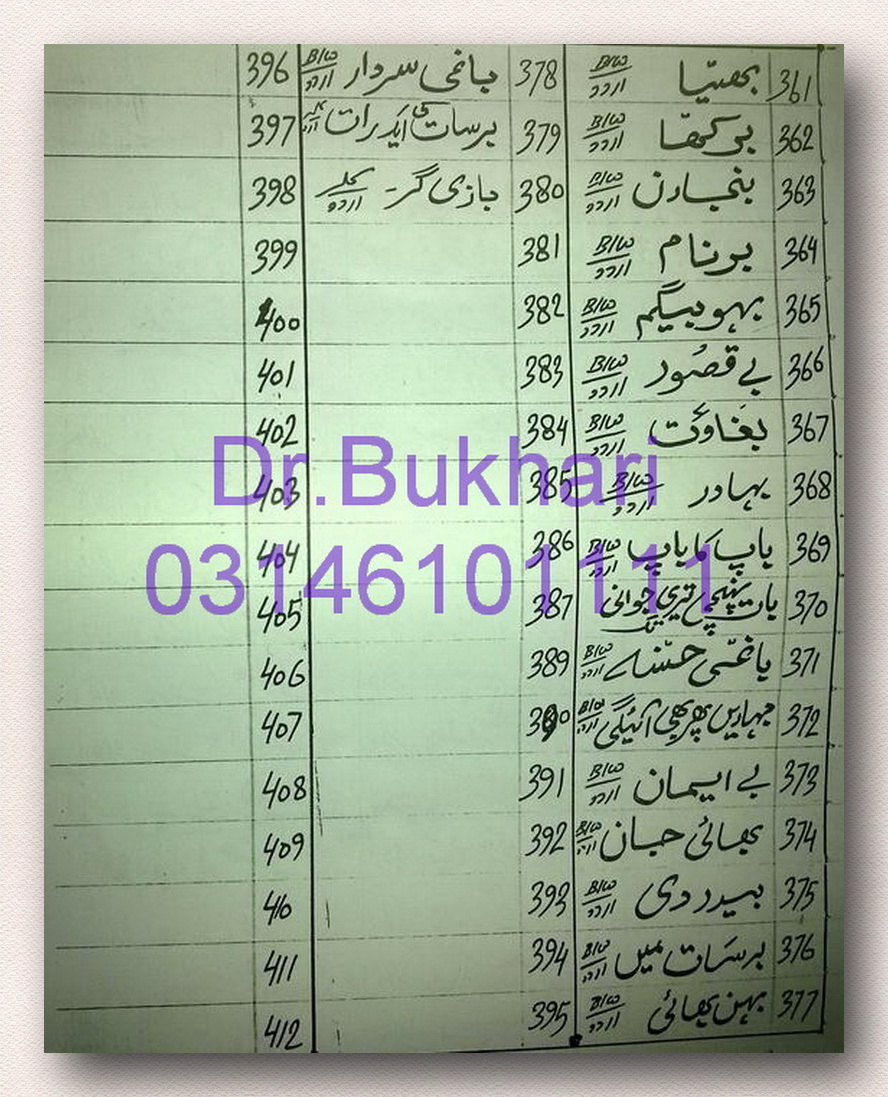 361 بھیّا B/W اردو 378 باغی سردار B/W اردو 396
362 برکھا B/W اردو 379 برسات کی ایک رات اردو 397
363 بنجارن B/W اردو 380 بازی گر - کلر اردو 398
364 بدنام B/W اردو 381 399
365 بہو بیگم B/W اردو 382 400
366 بے قصُور B/W اردو 383 401
367 بغاوت B/W اردو 384 402
368 بہادر B/W اردو 385 403
369 باپ کا باپ B/W اردو 386 404
370 بات پہنچی تیری جوانی تک 387 405
371 باغی حسینہ B/W اردو 389 406
372 بہاریں پھر بھی آئیگی B/W اردو 390 407
373 بے ایمان B/W اردو 391 408
374 بھائی جان B/W اردو 392 409
375 بیدردی B/W اردو 393 410
376 برسَات میں B/W اردو 394 411
377 بہن بھائی B/W اردو 395 412
Dr.Bukhari
03146101111